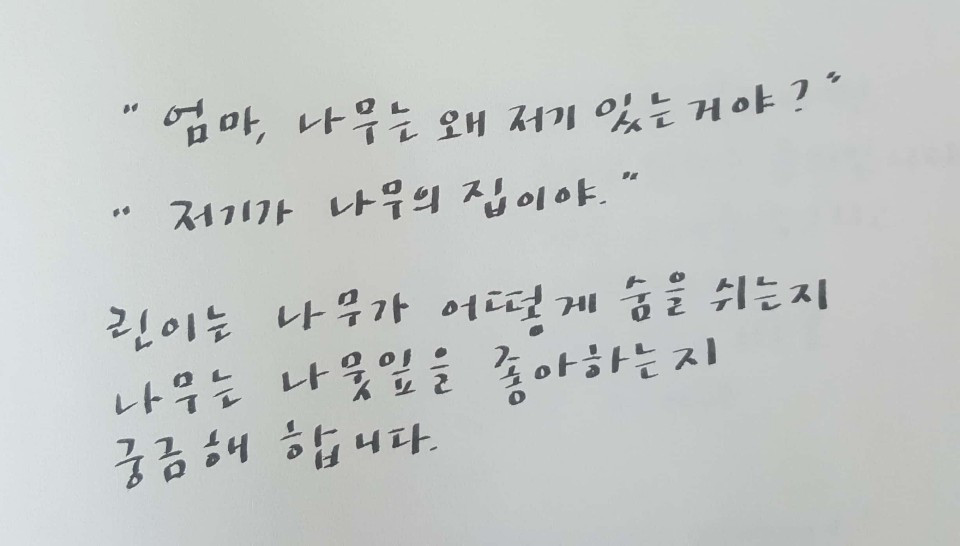 "엄마, 나무는 왜 저기 있는거야?"
"저기가 나무의 집이야."
린이는 나무가 어떻게 숨을 쉬는지
나무는 나뭇잎을 좋아하는지
궁금해 합니다.